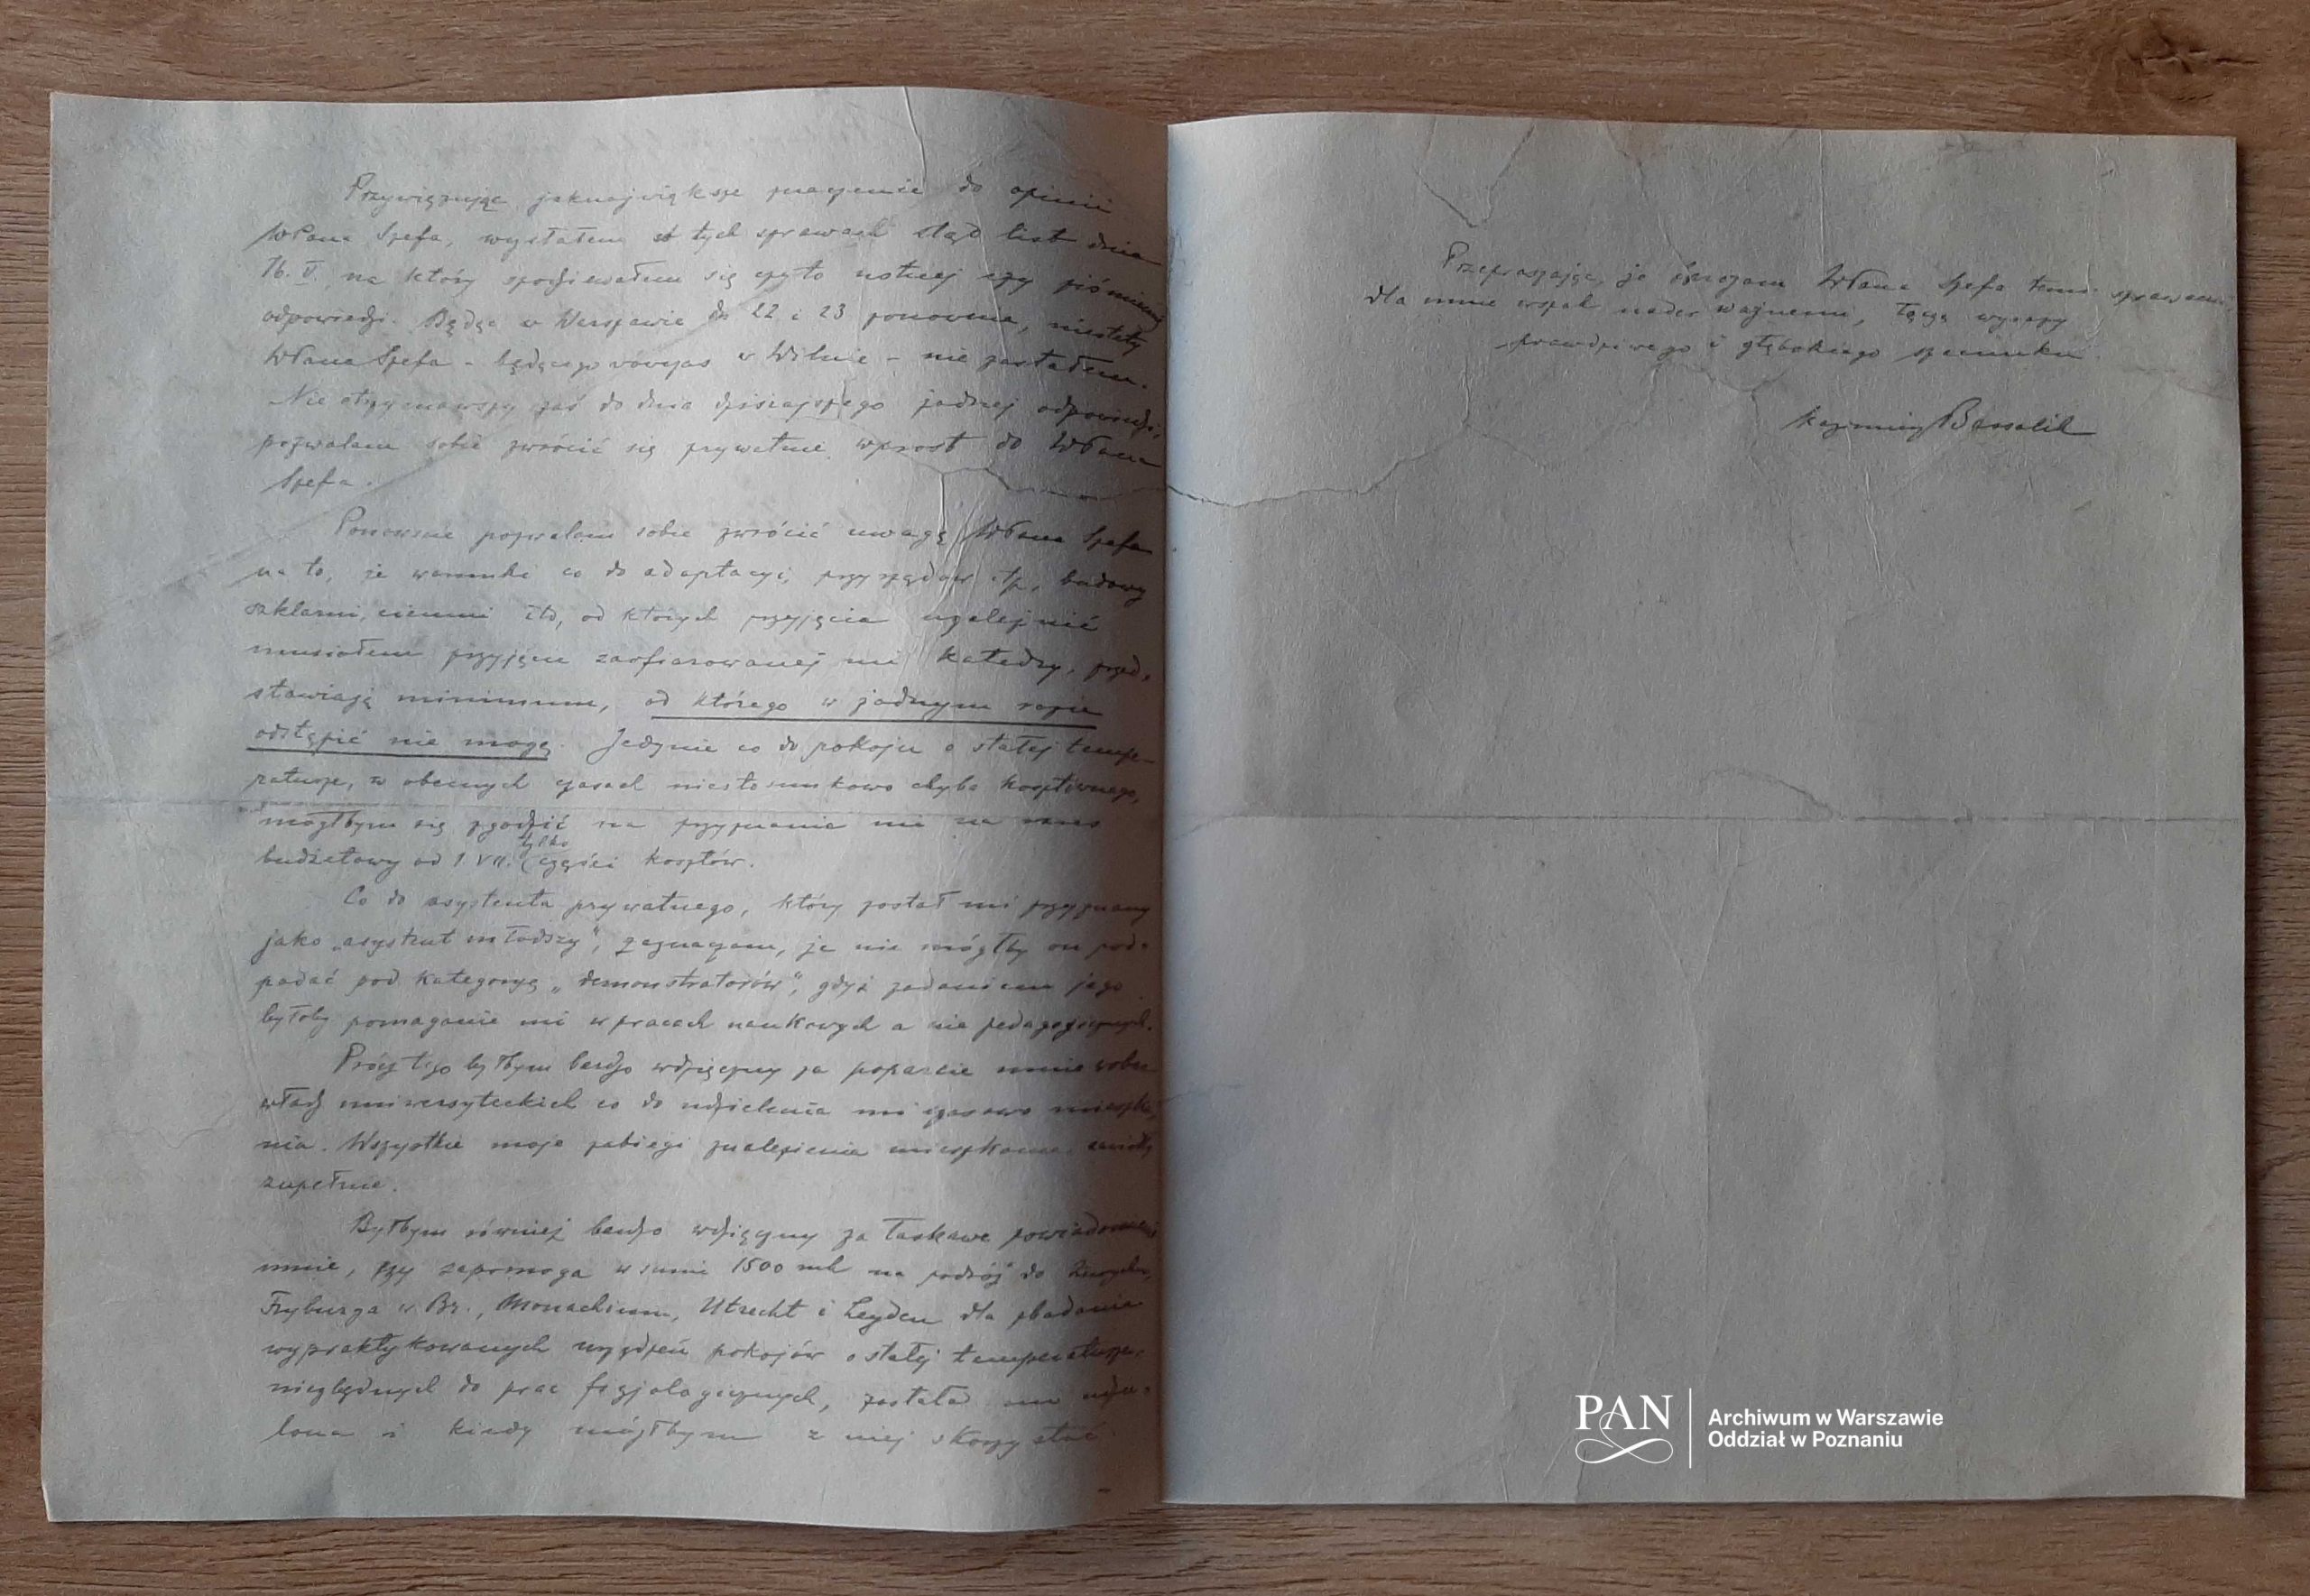 Przywiązując jaknajwiększe znaczenie do opinii
WPana Szefa, wysłałem w tych sprawach stąd list dnia
16. V. na który spodziewałem się czy to ustnej czy piśmiennej
odpowiedzi. Będąc w Warszawie dn 22 i 23 ponownie, niestety
WPana Szefa - będącego wówczas w Wilnie - nie zastałem.
Nie otrzymawszy zaś do dnia dzisiejszego żadnej odpowiedzi,
pozwalam sobie zwrócić się prywatnie wprost do WPana
Szefa.
Ponownie pozwalam sobie zwrócić uwagę WPana Szefa
na to, że warunki co do adaptacyi, przyrządów itp, budowy
szklarni, ciemni itd, od których przyjęcia uzależnić
musiałem przyjęcie zaofiarowanej mi katedry, przed-
stawiają minimum, od którego w żadnym razie
odstąpić nie mogę. Jedynie co do pokoju o stałej tempe-
raturze, w obecnych czasach niestosunkowo chyba kosztownego,
mógłbym się zgodzić na przyznanie mi na okres
budżetowy od 1 VII. tylko części kosztów.
Co do asystenta prywatnego, który został mi przyznany
jako „asystent młodszy", zaznaczam, że nie mógłby on pod-
padać pod kategoryę „demonstratorów", gdyż zadaniem jego
byłoby pomaganie mi w pracach naukowych a nie pedagogicznych.
Prócz tego byłbym bardzo wdzięczny za poparcie mnie wobec
władz uniwersyteckich co do udzielenia mi czasowo mieszka-
nia. Wszystkie moje zabiegi znalezienia mieszkania zawiodły
zupełnie.
Byłbym również bardzo wdzięczny za łaskawe powiadomienie
mnie, czy zapomoga w sumie 1500 mk na podróż do Zurychu,
Fryburga w Br., Monachium, Utrecht i Leyden dla zbadania
wypraktykowanych urządzeń pokojów o stałej temperaturze,
niezbędnych do prac fizjologicznych, została mi udzie-
lona i kiedy mógłbym z niej skorzystać
Przepraszając, że WPana Szefa temi sprawami
dla mnie wszak nader ważnemi, łączę wyrazy
prawdziwego i głębokiego szacunku
Kazimierz Bassalik
PAN
Archiwum w Warszawie
Oddział w Poznaniu